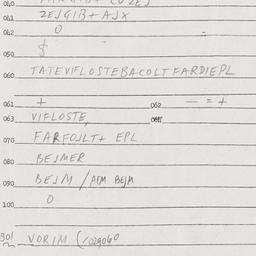 040
041 ZEJGIB+ AJX
042 0 =
050
060 TATEVIFLOSTEBACOLTFARDIEPL
061 + 062 — = +
063 VIFLOSTE,
070 FARFOJLT+ EPL
080 BEJMER
090 BEJM / AFM BEJM
100 0
301 VORIM (/029060